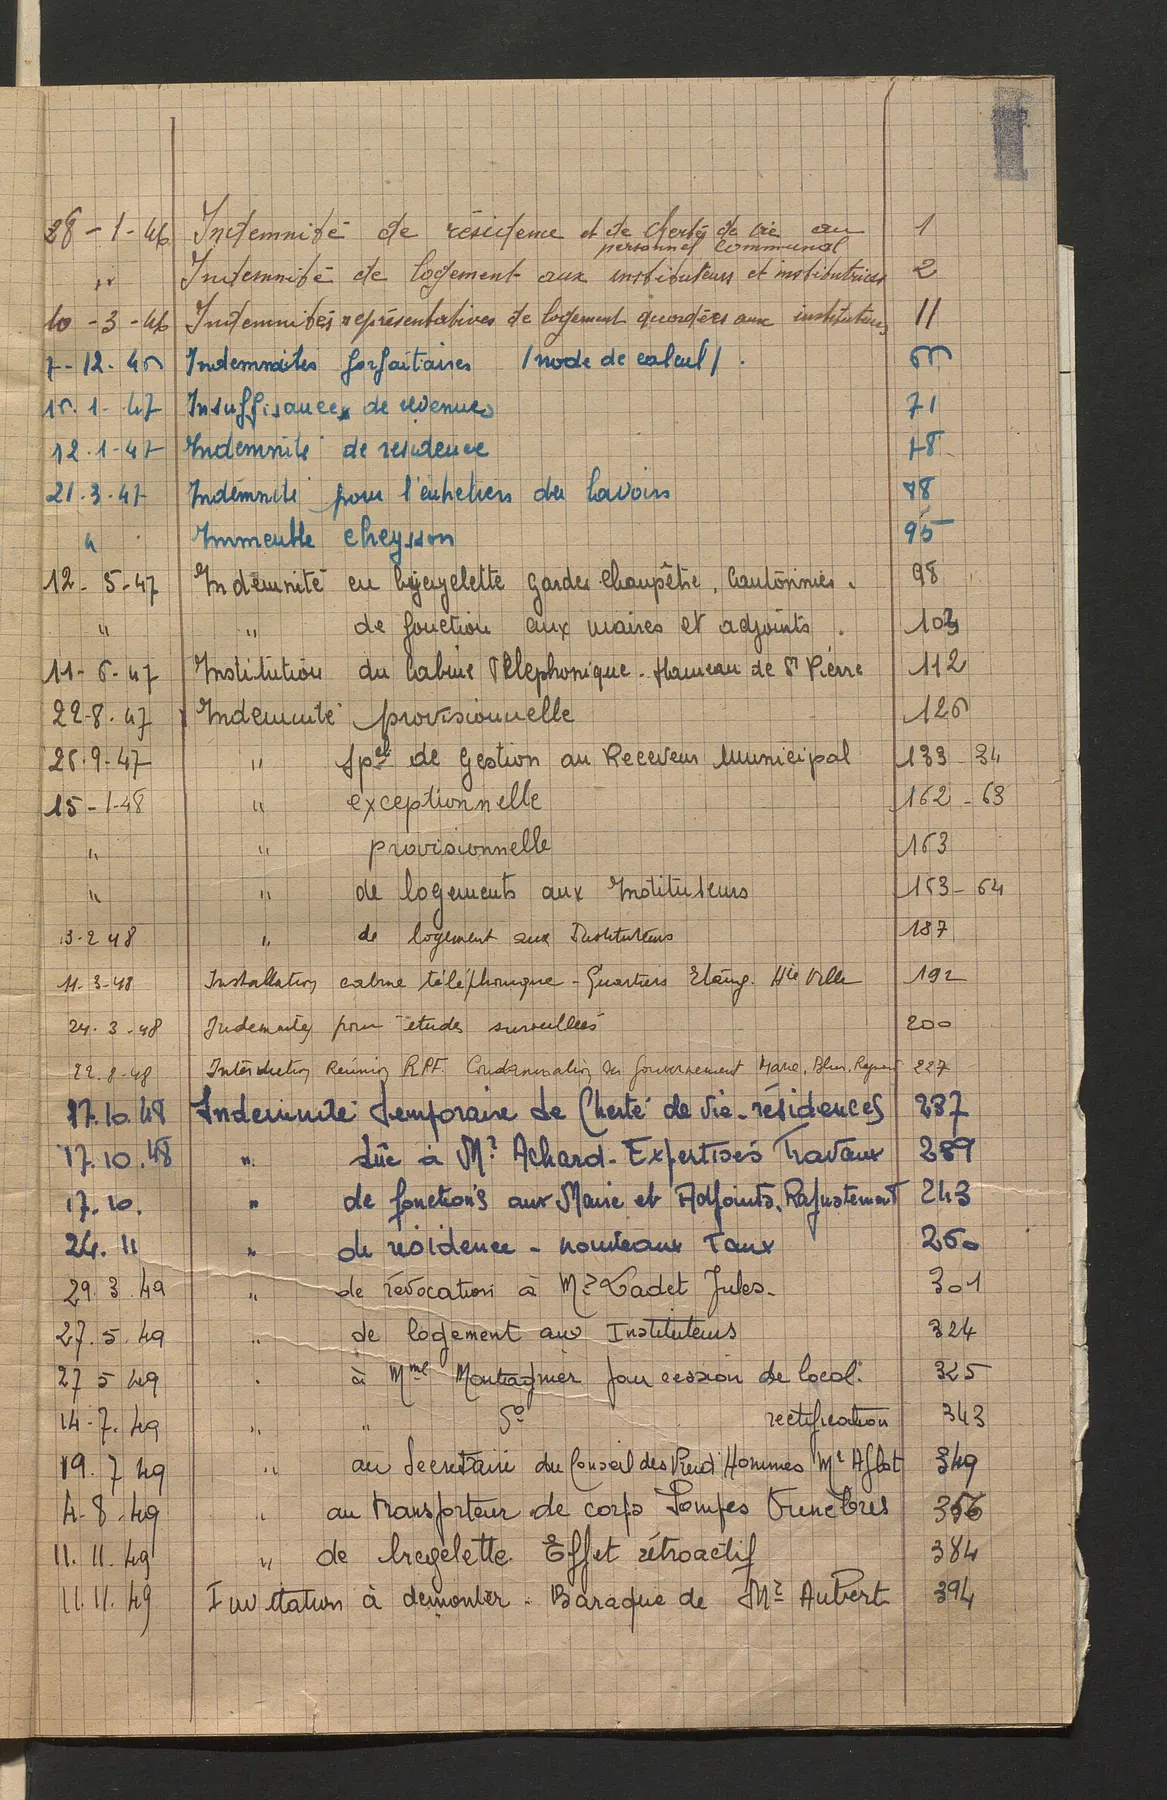 I
28-1-46 Indemnité de résidence et de cherté de vie au 1
personnel communal
" Indemnité de logement aux instituteurs et institutrices 2
10-3-46 Indemnités représentatives de logement accordées aux instituteurs 11
7-12-46 Indemnités forfaitaires (mode de calcul)
1-47 Insuffisances de revenues 71
12.1-47 Indemnité de résidence 78
21.3.47 Indemnité pour l'entretien des lavoirs 88
" Immeuble Cheysson 95
12-5-47 Indemnité en bycyclette Gardes Champêtre, Cantonnies. 98
" " de fonction aux maires et adjoints. 103
11-6-47 Institution du Cabine Téléphonique. Hameau de St Pierre 112
22-8-47 Indemnité provisionnelle 126
26.9-47 " spel de Gestion au Receveur Municipal 133-34
15-1-48 " exceptionnelle 162-63
" " provisionnelle 163
" " de logements aux Instituteurs 163-64
3-2 48 " de logement aux Instituteurs 187
11-3-48 Installation cabine téléphonique - Quartiers Etang. Hte Ville 192
24.3-48 Indemnités pour études surveillées 200
22.8-48 Interdiction Réunion RPF. Condamnation du gouvernement Marie, Blum, 227
17.10.48 Indemnité Temporaire de Cherté de vie - résidences 237
17.10.48 " dûe à Mr Achard - Expertises Travaux 239
17.10. " de fonctions aux Maire et Adjoints. Rajustement 243
24.11 " de résidence - nouveaux Taux 260
29.3.49 " de révocation à Mr Cadet Jules. 301
27.5.49 " de logement aux Instituteurs 324
27 5 49 " à Mme Montagnier pour cession de local. 325
14-7.49 " " do rectification 343
19.7 49 " au Secrétaire du Conseil des Prud'Hommes Mr 349
4-8.49 " au transporteur de corps Pompes Funèbres 356
11.11.49 " de bicyclette. Effet rétroactif 384
11.11.49 Invitation à démonter - Baraque de Mr Aubert 394